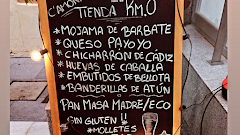 TIENDA KM.0
* MOJAMA DE BARBATE
* QUESO PAYOYO
* CHICHARRÓN DE CÁDIZ
* HUEVAS DE CABALLA
* EMBUTIDOS DE BELLOTA
* BANDERILLAS DE ATÚN
PAN MASA MADRE/ECO
SIN GLUTEN !!
* MOLLETES